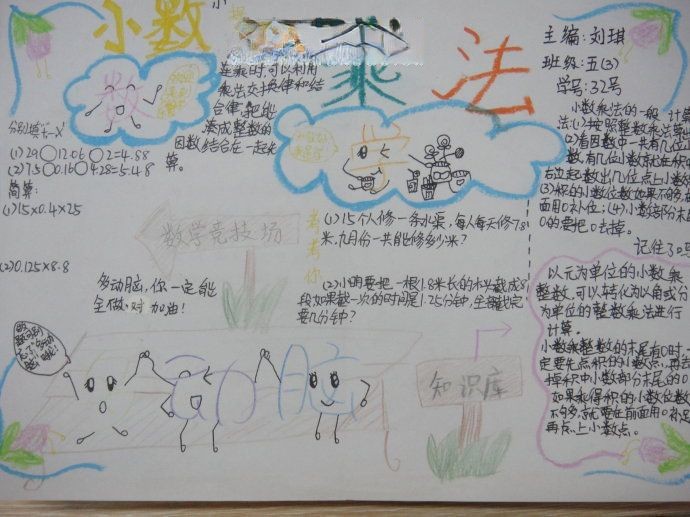 小数
乘法
小
主编：刘琪
班级：五(3)
学号：32号
数
连乘时，可以利用
乘法交换律和结
合律，把能
凑成整数的
因数结合在一起来
算。
(1)29○12.06○2=4.88
(2)7.5○0.16○4.28=5.48
简算：
(1)15×0.4×25
(2)0.125×8.8
学
数学竞技场
考考你
(1)15个人修一条水渠，每人每天修7.8
米，九月份一共能修多少米？
(2)小明要把一根1.8米长的木头截成8
段如果截一次的时间是1.25分钟，全截
要几分钟？
多动脑，你一定能
全做对加油！
动脑
知识库
小数乘法的一般计算
法：(1)按照整数乘法算
(2)看因数中一共有几位小
数，有几位小数就在积
右边起数出几位点上小数
(3)积的小数位数如果不够，在
面用0补位；(4)小数部分末
0的要把0去掉。
记住了吗
以元为单位的小数乘
整数，可以转化为以角或分
为单位的整数乘法进行
计算。
小数乘整数的末尾有0时一
定要先点积的小数点，再去
掉积中小数部分末尾的0
如果乘得积的小数位数
不够，就要在前面用0补足
再点上小数点。